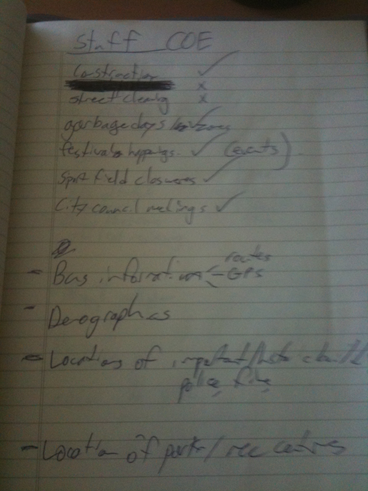 Staff COE
Construction ✓
x
street cleaning x
garbage days / zones
festivals happenings ✓ (events)
Sport field closures ✓
City council meetings ✓
- Bus information < routes
GPS
- Demographics
- Locations of important
police, fire,
- Location of parks / rec centres